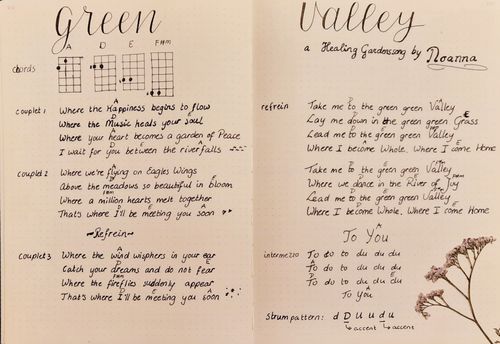 Green Valley
a Healing Gardensong by Noanna
chords
A D E F#m
couplet 1
A
Where the Happiness begins to flow
D E
Where the Music heals your soul
Where your heart becomes a garden of Peace
I wait for you between the riverfalls
couplet 2
Where we're flying on Eagles Wings
Above the meadows so beautiful in bloom
Where a million hearts melt together
That's where I'll be meeting you soon
~Refrein~
couplet 3
Where the wind wisphers in your ear
Catch your dreams and do not fear
Where the fireflies suddenly appear
That's where I'll be meeting you soon
refrein
Take me to the green green Valley
Lay me down in the green green Grass
Lead me to the green green Valley
Where I become Whole, Where I come Home
Take me to the green green Valley
Where we dance in the River of Joy
Lead me to the green green Valley
Where I become Whole, Where I come Home
To You
intermezzo
To do to du du du
To do to du du du
To do to du du du
To You
strumpattern: d D U u d u
accent accent